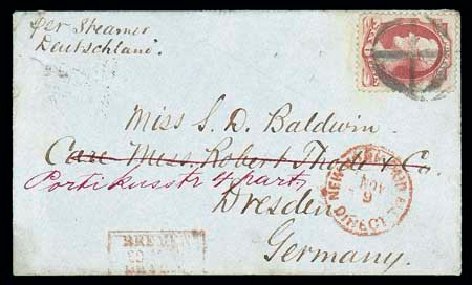 per Steamer
Deutschland.
Miss S. D. Baldwin
Care Messrs. Robert Thode & Co.
Portikusstr 4 part,
Dresden
Germany.
NEW
NOV
9
DIRECT
BREMEN